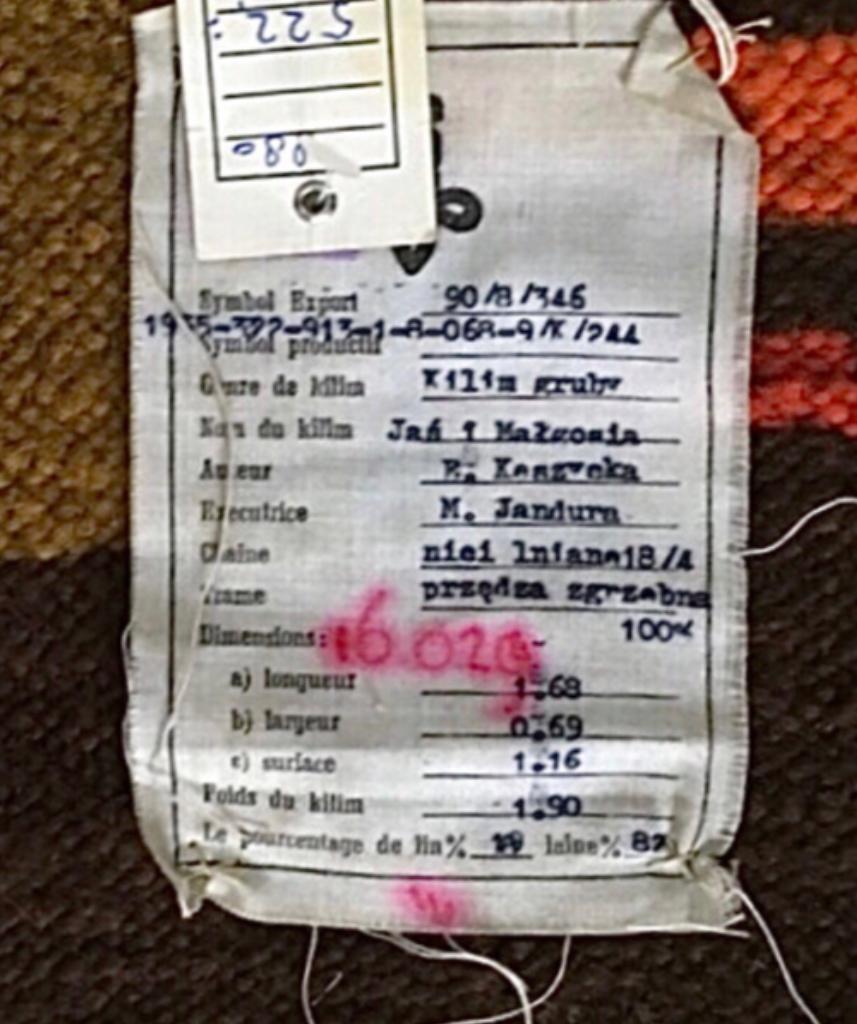 522
Symbol Export 90/8/346
Symbol productif
Genre de kilim Kilim gruby
Nom du kilim Jaś i Małgosia
Auteur
Executrice M. Jandura
Chaîne nici lniane 18/4
Trame przędza zgrzebna
100%
Dimensions: 6.02
a) longueur 1.68
b) largeur 0.69
c) surface 1.16
Poids du kilim 1.90
Le pourcentage de lin% laine%